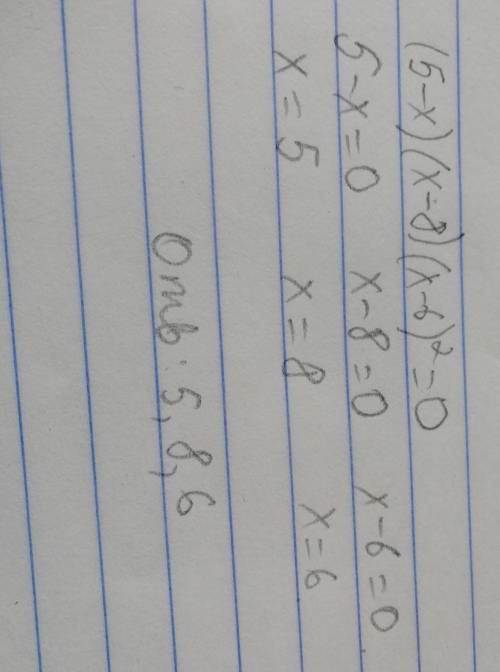 (5-x)(x-8)(x-6)²=0
5-x=0 x-8=0 x-6=0
x=5 x=8 x=6
Отв: 5, 8, 6